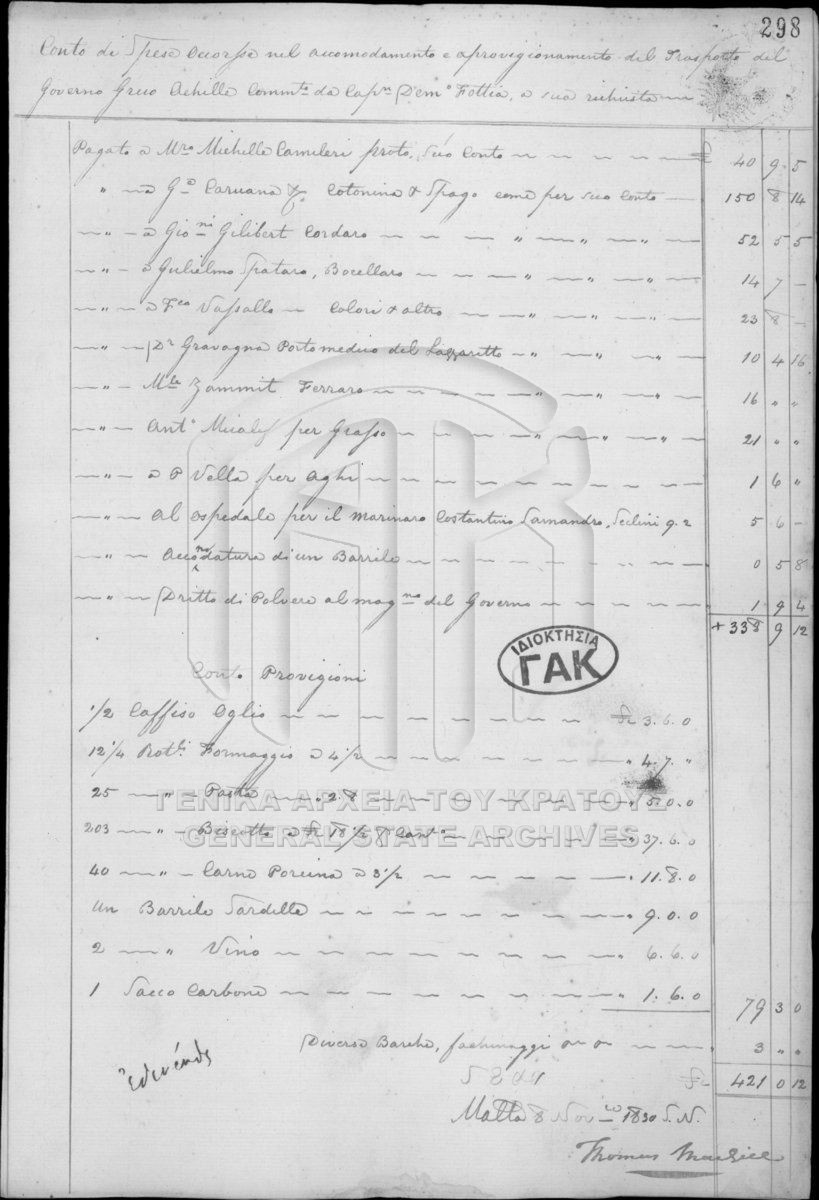 298
Conto di Spese occorse nel accomodamento e aprovigionamento del Trasporto del
Governo Greco Achille Comm.te da Cap.n Dem.o Fottia, a sua richiesta
Pagato a M.ro Michelle Camileri proto, suo Conto 40 9 5
" a G.o Caruana & Co. Cotonina & Spago come per suo Conto 150 8 14
" a Gio.ni Gilibert Cordaro " " " 52 5 5
" a Gulielmo Spataro, Bocellaro " " 14 7 -
" a F.co Vassallo Colori & altro " " " 23 8 -
" D.r Gravagna Portomedico del Lazzaretto " " " 10 4 16
" M.le Zammit Ferraro " " " 16 " "
" Ant.o per Grasso " " " 21 " "
" a P Vella per Aghi 1 6 "
" Al Ospedale per il marinaro Costantino Samandro, Seclini g. 2 5 6 -
" Accomodatura di un Barrile 0 5 8
" Dritto di Polvere al mag.no del Governo 1 9 4
+ 338 9 12
ΙΔΙΟΚΤΗΣΙΑ
ΓΑΚ
Conto Provigioni
1/2 Caffiso Oglio 3.6.0
12 1/4 Rot.li Formaggio a 4 1/2 " 4.7."
25 " Pasta " 2.8 " 5.0.0
ΓΕΝΙΚΑ ΑΡΧΕΙΑ ΤΟΥ ΚΡΑΤΟΥΣ
203 " Biscotto a 18 1/2 Cant.o 37.6.0
GENERAL STATE ARCHIVES
40 " Carne Porcina a 3 1/2 " 11.8.0
Un Barrile Sardelle " 9.0.0
2 " Vino " 6.6.0
1 Sacco Carbone " 1.6.0
79 3 0
Diverse Barche, fachinaggi 3 " "
421 0 12
Malta 8 Nov 1830 S.N.
Thomas